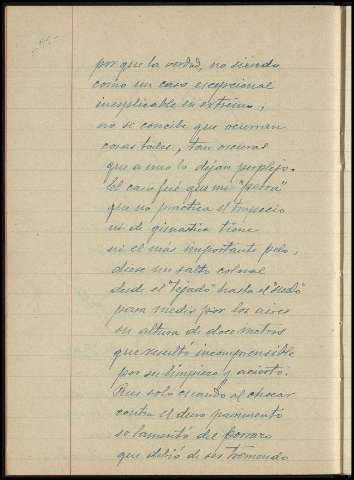 -95-
por que la verdad, no siendo
como un caso escepcional
inesplicable en extremo,
no se concibe que ocurran
cosas tales, tan oscuras
que a uno lo dejan perplejo.
El caso fué que mi "perra"
que no practica el trapecio
ni de gimastica tiene
ni el más importante pelo,
diese un salto colosal
desde el "tejado" hasta el "suelo"
para medir por los aires
su altura de doce metros
que resultó incomprensible
por su limpieza y acierto.
Pues solo cuando al chocar
contra el duro pavimento
se lamentó del porrazo
que debió de ser tremendo